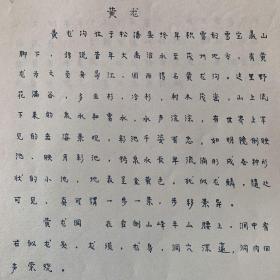 黄龙
黄龙沟位于松潘县终年积雪的雪宝鼎山
脚下，传说昔年大禹治水至茂州地方，有黄
龙为之负舟导江，因而得名黄龙沟，这里野
花满谷，多云杉、冷杉，树木茂密，山上流
下来的泉水和雪水，水声淙淙，有世界上罕
见的岩溶景观，彩池千姿百态，如明镜倒映
池、映月彩池，钙泉水长年流淌形成各种形
状的小池，地表呈金黄色，犹似龙鳞，随处
可见，真可谓一步一景，步移景异。
黄龙洞 在青侧山峰半山腰上，洞中有
石似龙头、龙须、龙身，洞穴深邃，洞内回
多萦绕。